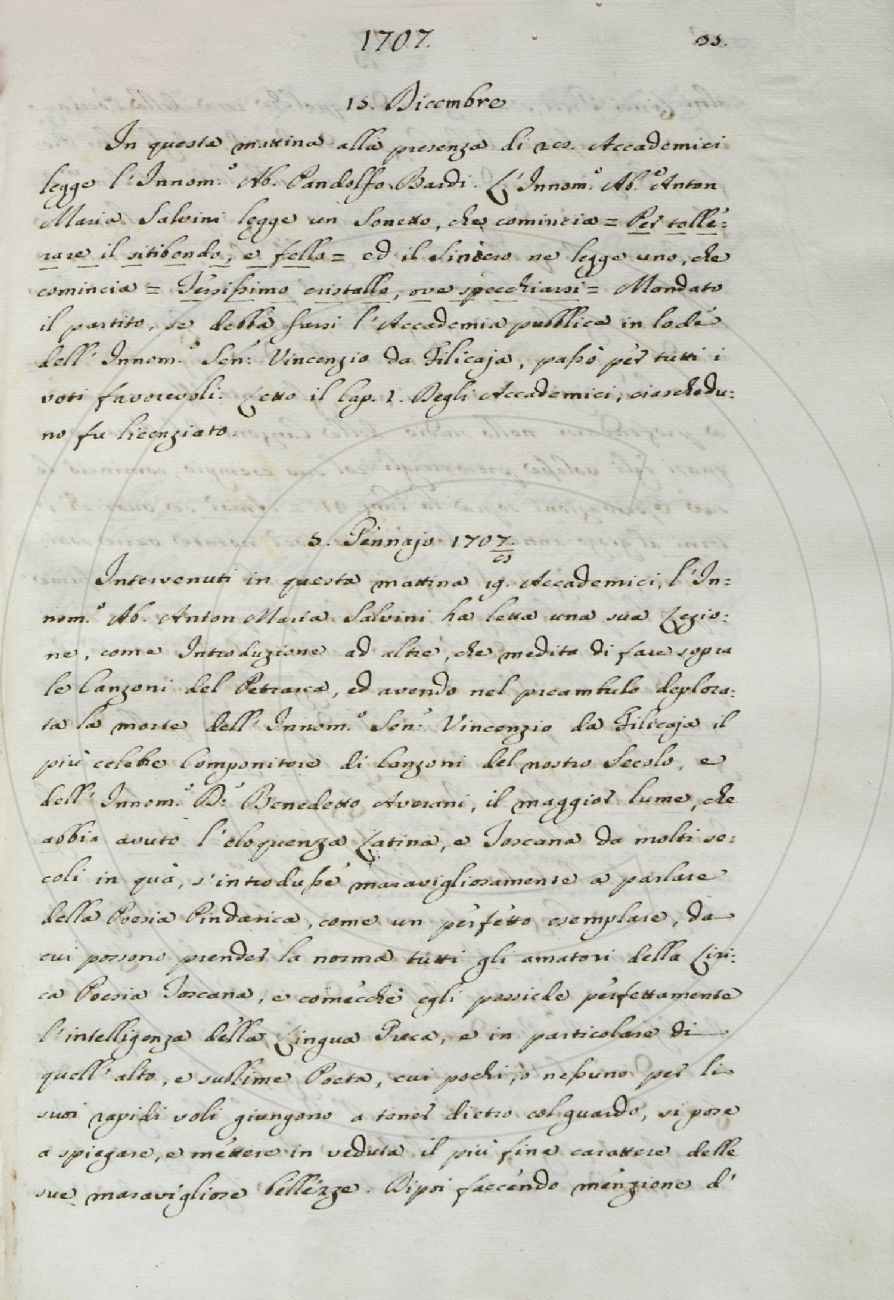 1707.
35.
15. Dicembre
In questa mattina alla presenza di 20. Accademici
legge l'Innom.º Ab. Pandolfo Bardi. L'Innom.º Ab.º Anton
Maria Salvini legge un Sonetto, che comincia = Per tolle:
rare il sitibondo, e fello = ed il Sindaco ne legge uno, che
comincia = Tersissimo cristallo, ove specchiarsi = Mandato
il partito, se debba farsi l'Accademia pubblica in lode
dell'Innom.º Sen: Vincenzio da Filicaja, passò per tutti i
voti favorevoli. Letto il Cap. 1. Degli Accademici, ciaschedu:
no fu licenziato.
5. Gennajo 1707.
Intervenuti in questa mattina 19. Accademici, l'In=
nom.º Ab. Anton Maria Salvini ha letta una sua Lezio:
ne, come Introduzione ad altre, che medita di fare sopra
le Canzoni del Petrarca, ed avendo nel preambulo deplora:
ta la morte dell'Innom.º Sen: Vincenzio da Filicaja il
più celebre Componitore di Canzoni del nostro Secolo, e
dell'Innom.º D: Benedetto Averani, il maggior lume, che
abbia avuto l'eloquenza Latina, e Toscana da molti se:
coli in quà, s'introdusse maravigliosamente a parlare
della Poesia Pindarica, come un perfetto esemplare, da
cui possono prender la norma tutti gli amatori della Liri:
ca Poesia Toscana, e comecchè egli possiede perfettamente
l'intelligenza della Lingua Greca, e in particolare di
quell'alto, e sublime Poeta, cui pochi, o nessuno per li
suoi rapidi voli giungono a tener dietro col guardo, si pose
a spiegare, e mettere in veduta il più fine carattere delle
sue maravigliose bellezze. Dipoi facendo menzione d'